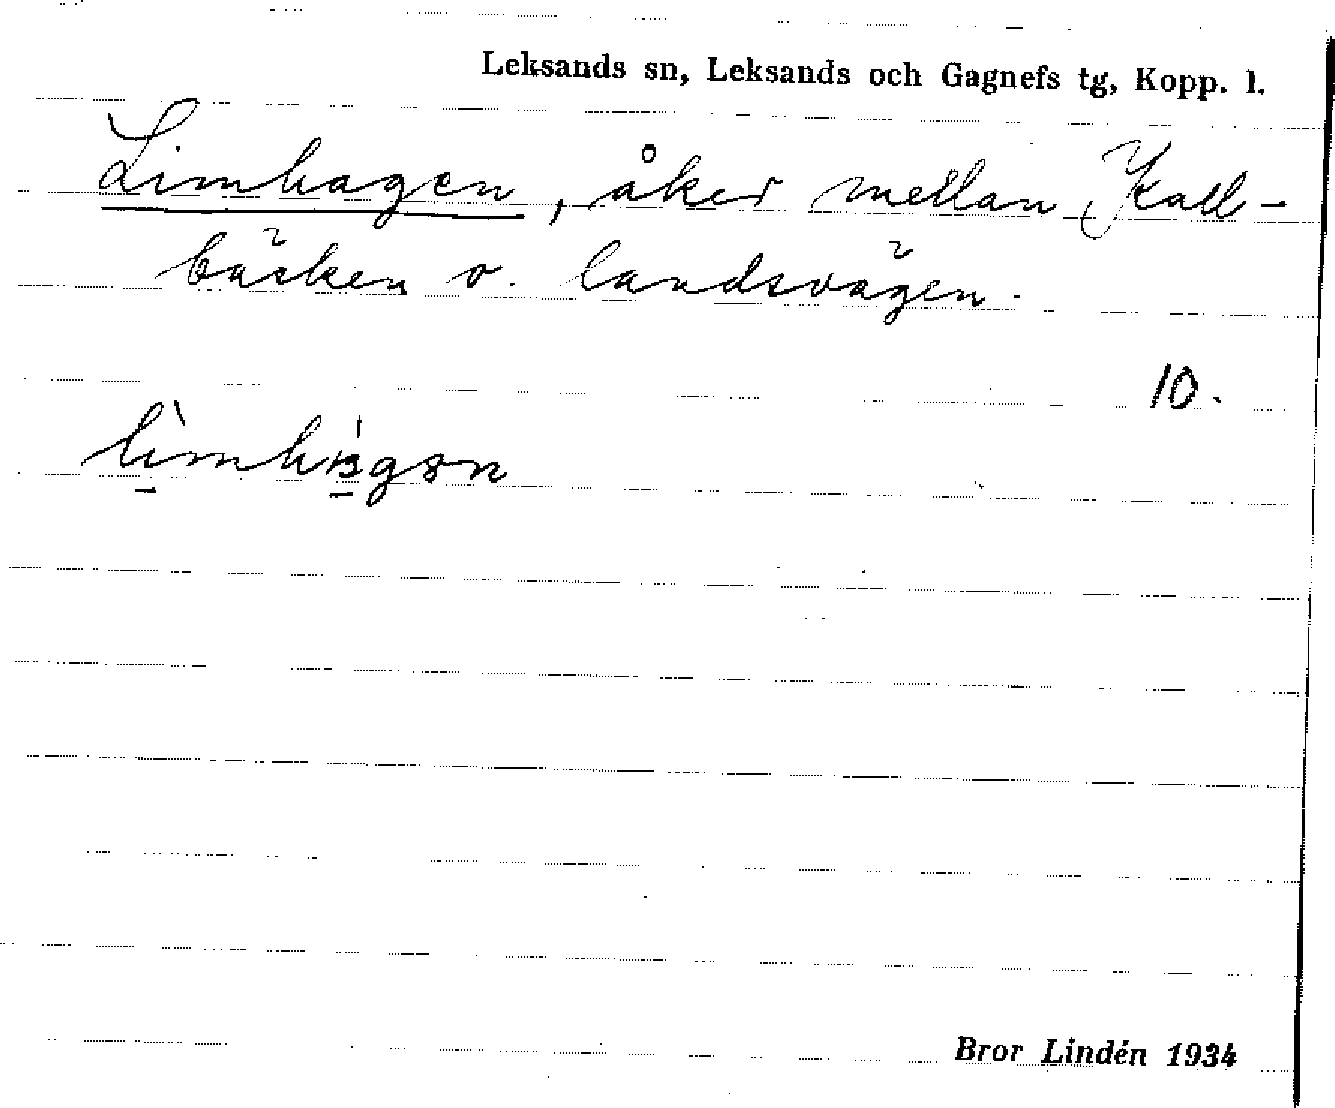 Leksands sn, Leksands och Gagnefs tg, Kopp. l.
Limhagen, åker mellan Kall-
bäcken o. landsvägen.
10.
Bror Lindén 1934